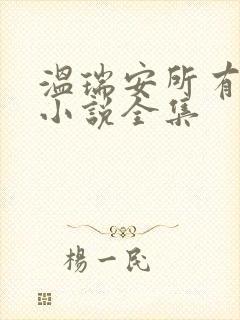 温瑞安所有
小说全集
楊一民